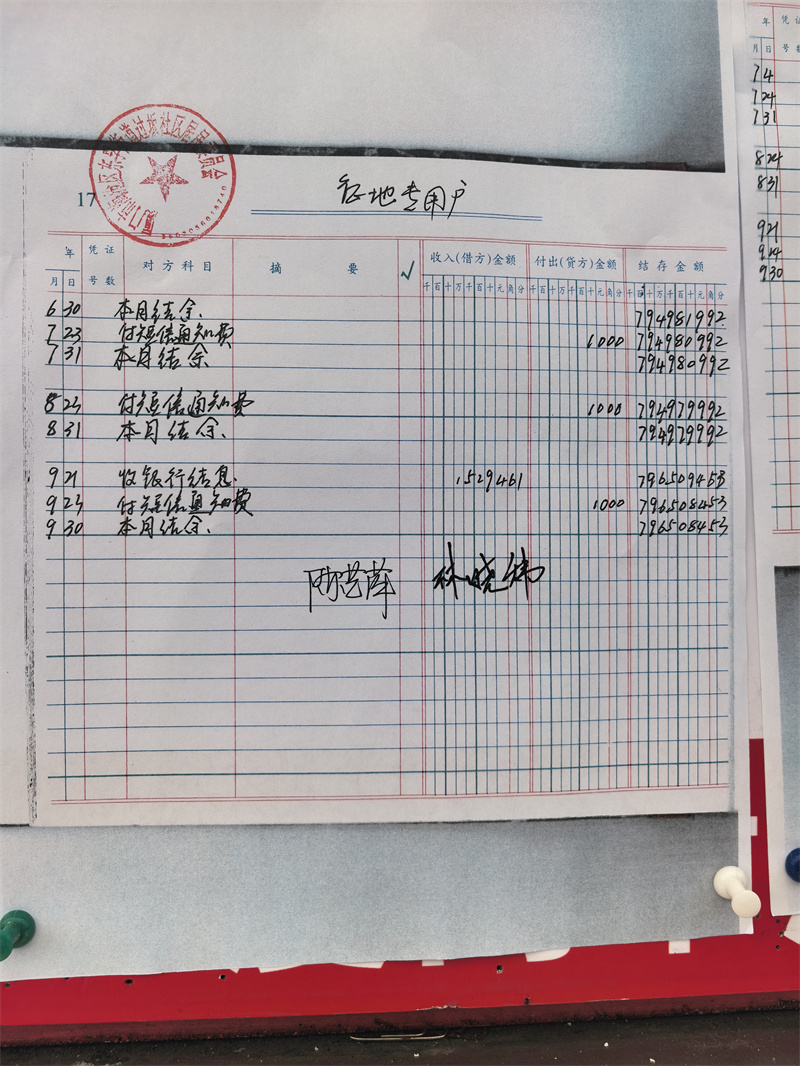 17
征地专用户
年 凭证 对方科目 摘要 √ 收入(借方)金额 付出(贷方)金额 结存金额
月 日 号数 千百十万千百十元角分 千百十万千百十元角分 千百十万千百十元角分
6 30 本月结余. 794981992
7 23 付短信通知费 1000 794980992
7 31 本月结余 794980992
8 23 付短信通知费 1000 794979992
8 31 本月结余. 794979992
9 21 收银行结息. 1529461 796509453
9 23 付短信通知费 1000 796508453
9 30 本月结余. 796508453
林晓
年 凭证
月 日 号
7 4
7 24
7 31
8 24
8 31
9 21
9 24
9 30